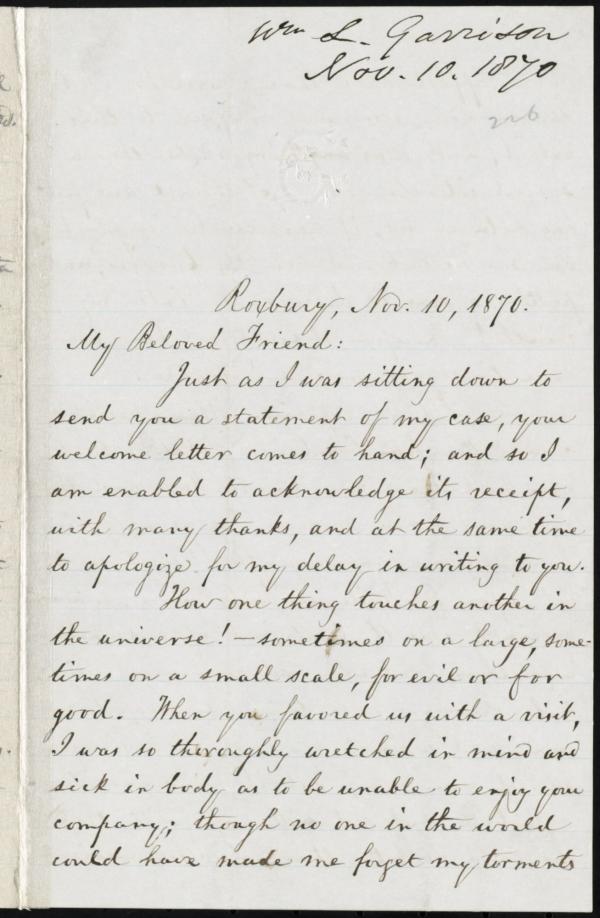 Wm L. Garrison
Nov. 10. 1870
226
Roxbury, Nov. 10, 1870.
My Beloved Friend:
Just as I was sitting down to
send you a statement of my case, your
welcome letter comes to hand; and so I
am enabled to acknowledge its receipt,
with many thanks, and at the same time
to apologize for my delay in writing to you.
How one thing touches another in
the universe! — sometimes on a large, some-
times on a small scale, for evil or for
good. When you favored us with a visit,
I was so thoroughly wretched in mind and
sick in body as to be unable to enjoy your
company; though no one in the world
could have made me forget my torments